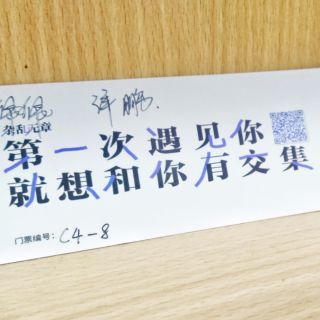 杂乱无章
第一次遇见你
就想和你有交集
门票编号：C4-8